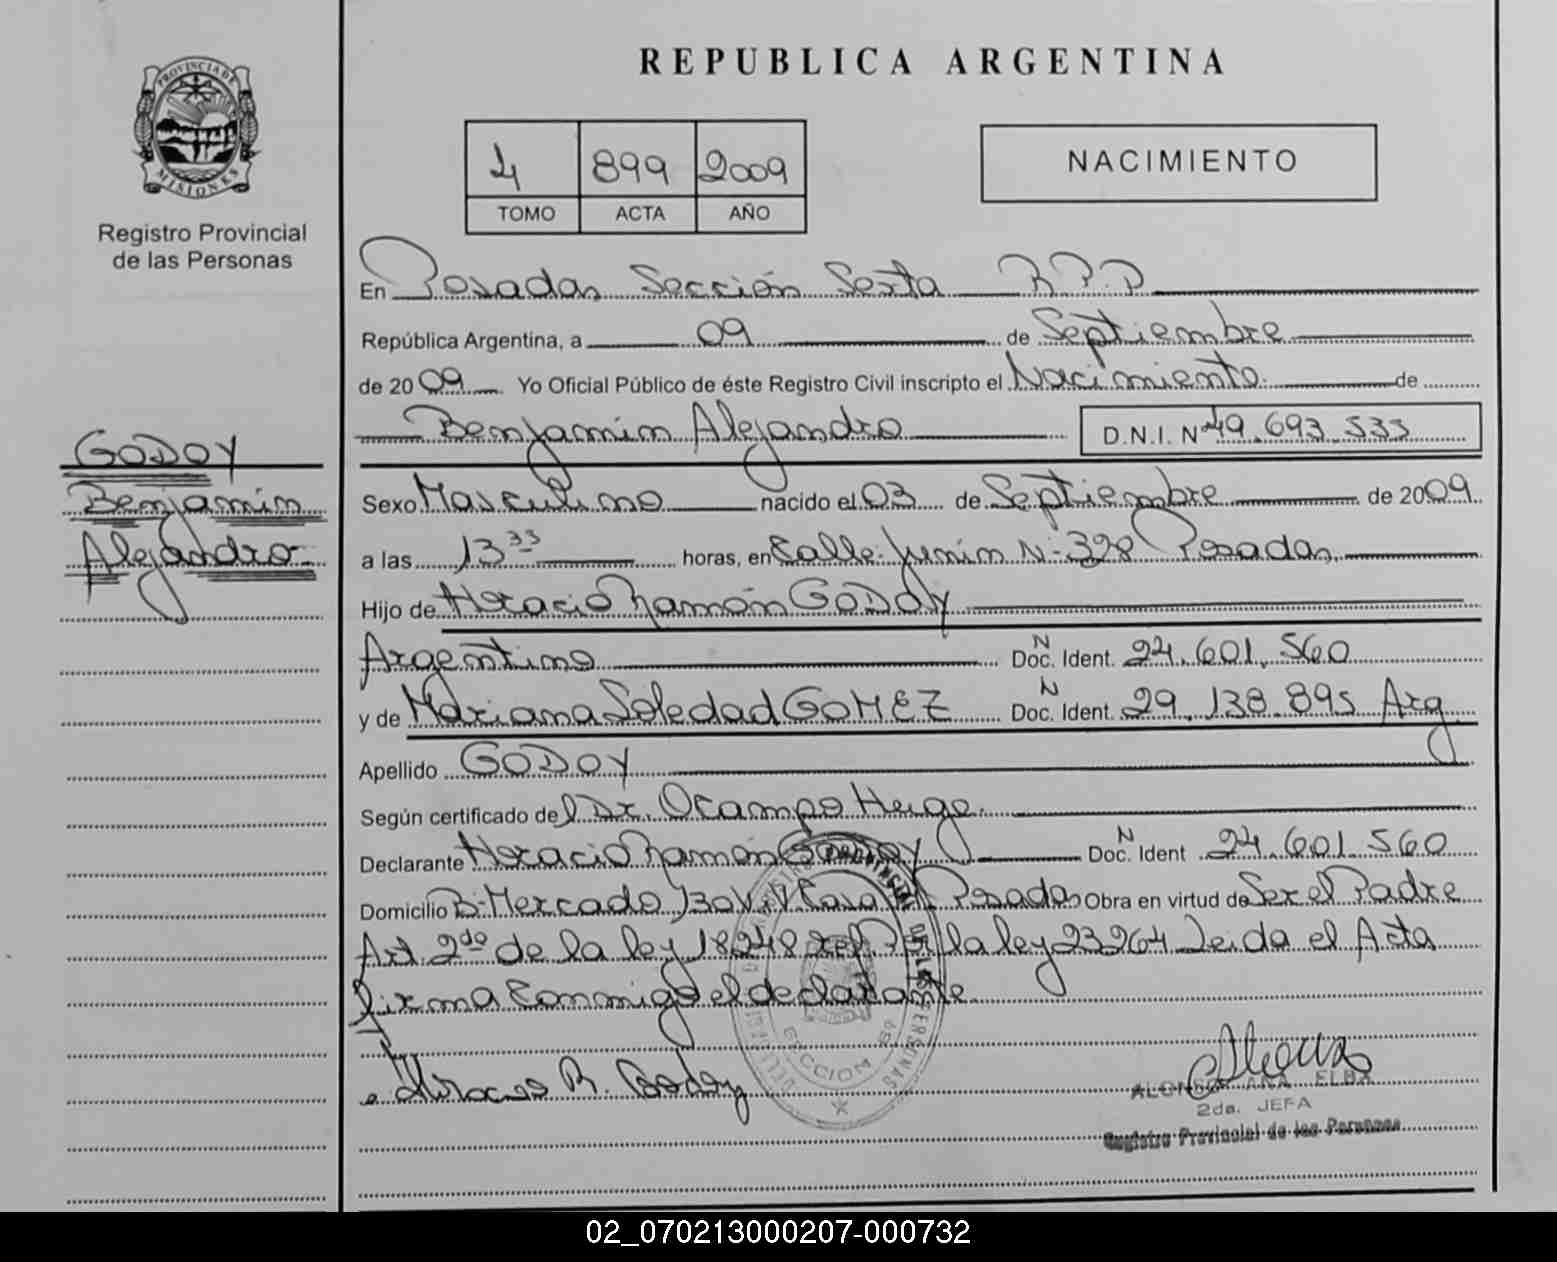 REPUBLICA ARGENTINA
PROVINCIA DE
MISIONES
Registro Provincial
de las Personas
4 899 2009
TOMO ACTA AÑO
NACIMIENTO
GODOY
Benjamín
Alejandro
En Posadas Sección Sexta R.P.P
República Argentina, a 09 de Septiembre
de 2009 Yo Oficial Público de éste Registro Civil inscripto el Nacimiento de
Benjamin Alejandro D.N.I. Nº 49.693.533
Sexo Masculino nacido el 03 de Septiembre de 2009
a las 13 33 horas, en Calle Junín Nº 328 Posadas
Hijo de Horacio Ramón GODOY
Argentino N Doc. Ident. 24.601.560
y de Mariana Soledad GOMEZ N Doc. Ident. 29.138.895 Arg
Apellido GODOY
Según certificado del Dr. Ocampo Hugo
Declarante Horacio Ramón Godoy N Doc. Ident 24.601.560
Domicilio Bº Mercado 130 Viv Casa Posadas Obra en virtud de Ser el Padre
Art. 2do de la ley 18248 ref. Por la ley 23264 Leida el Acta
firma Conmigo el declarante
Horacio R. Godoy
SECCION 6ª
ALONSO ANA ELBA
2da. JEFA
Registro Provincial de las Personas
02_070213000207-000732